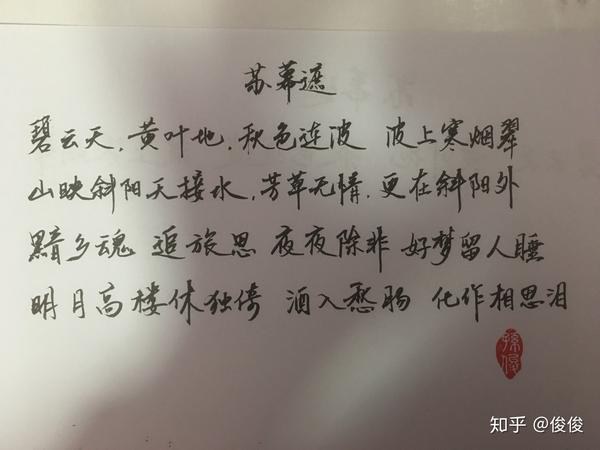 苏幕遮
碧云天,黄叶地,秋色连波 波上寒烟翠
山映斜阳天接水,芳草无情,更在斜阳外
黯乡魂 追旅思 夜夜除非 好梦留人睡
明月高楼休独倚 酒入愁肠 化作相思泪
孫俊
知乎 @俊俊